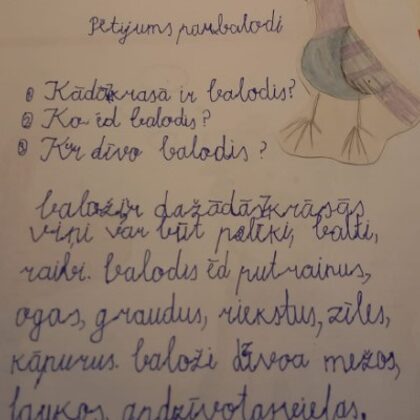 Pētījums par balodi
① Kādā krāsā ir balodis?
② Ko ēd balodis?
③ Kur dīvo balodis?
baloži ir dažādās krāsās
viņi var būt pelēki, balti,
raibi. balodis ēd putraimus,
ogas, graudus, riekstus, zīles,
kāpurus. baloži dzīvoa mežos,
laukos, apdzīvotās vietās.